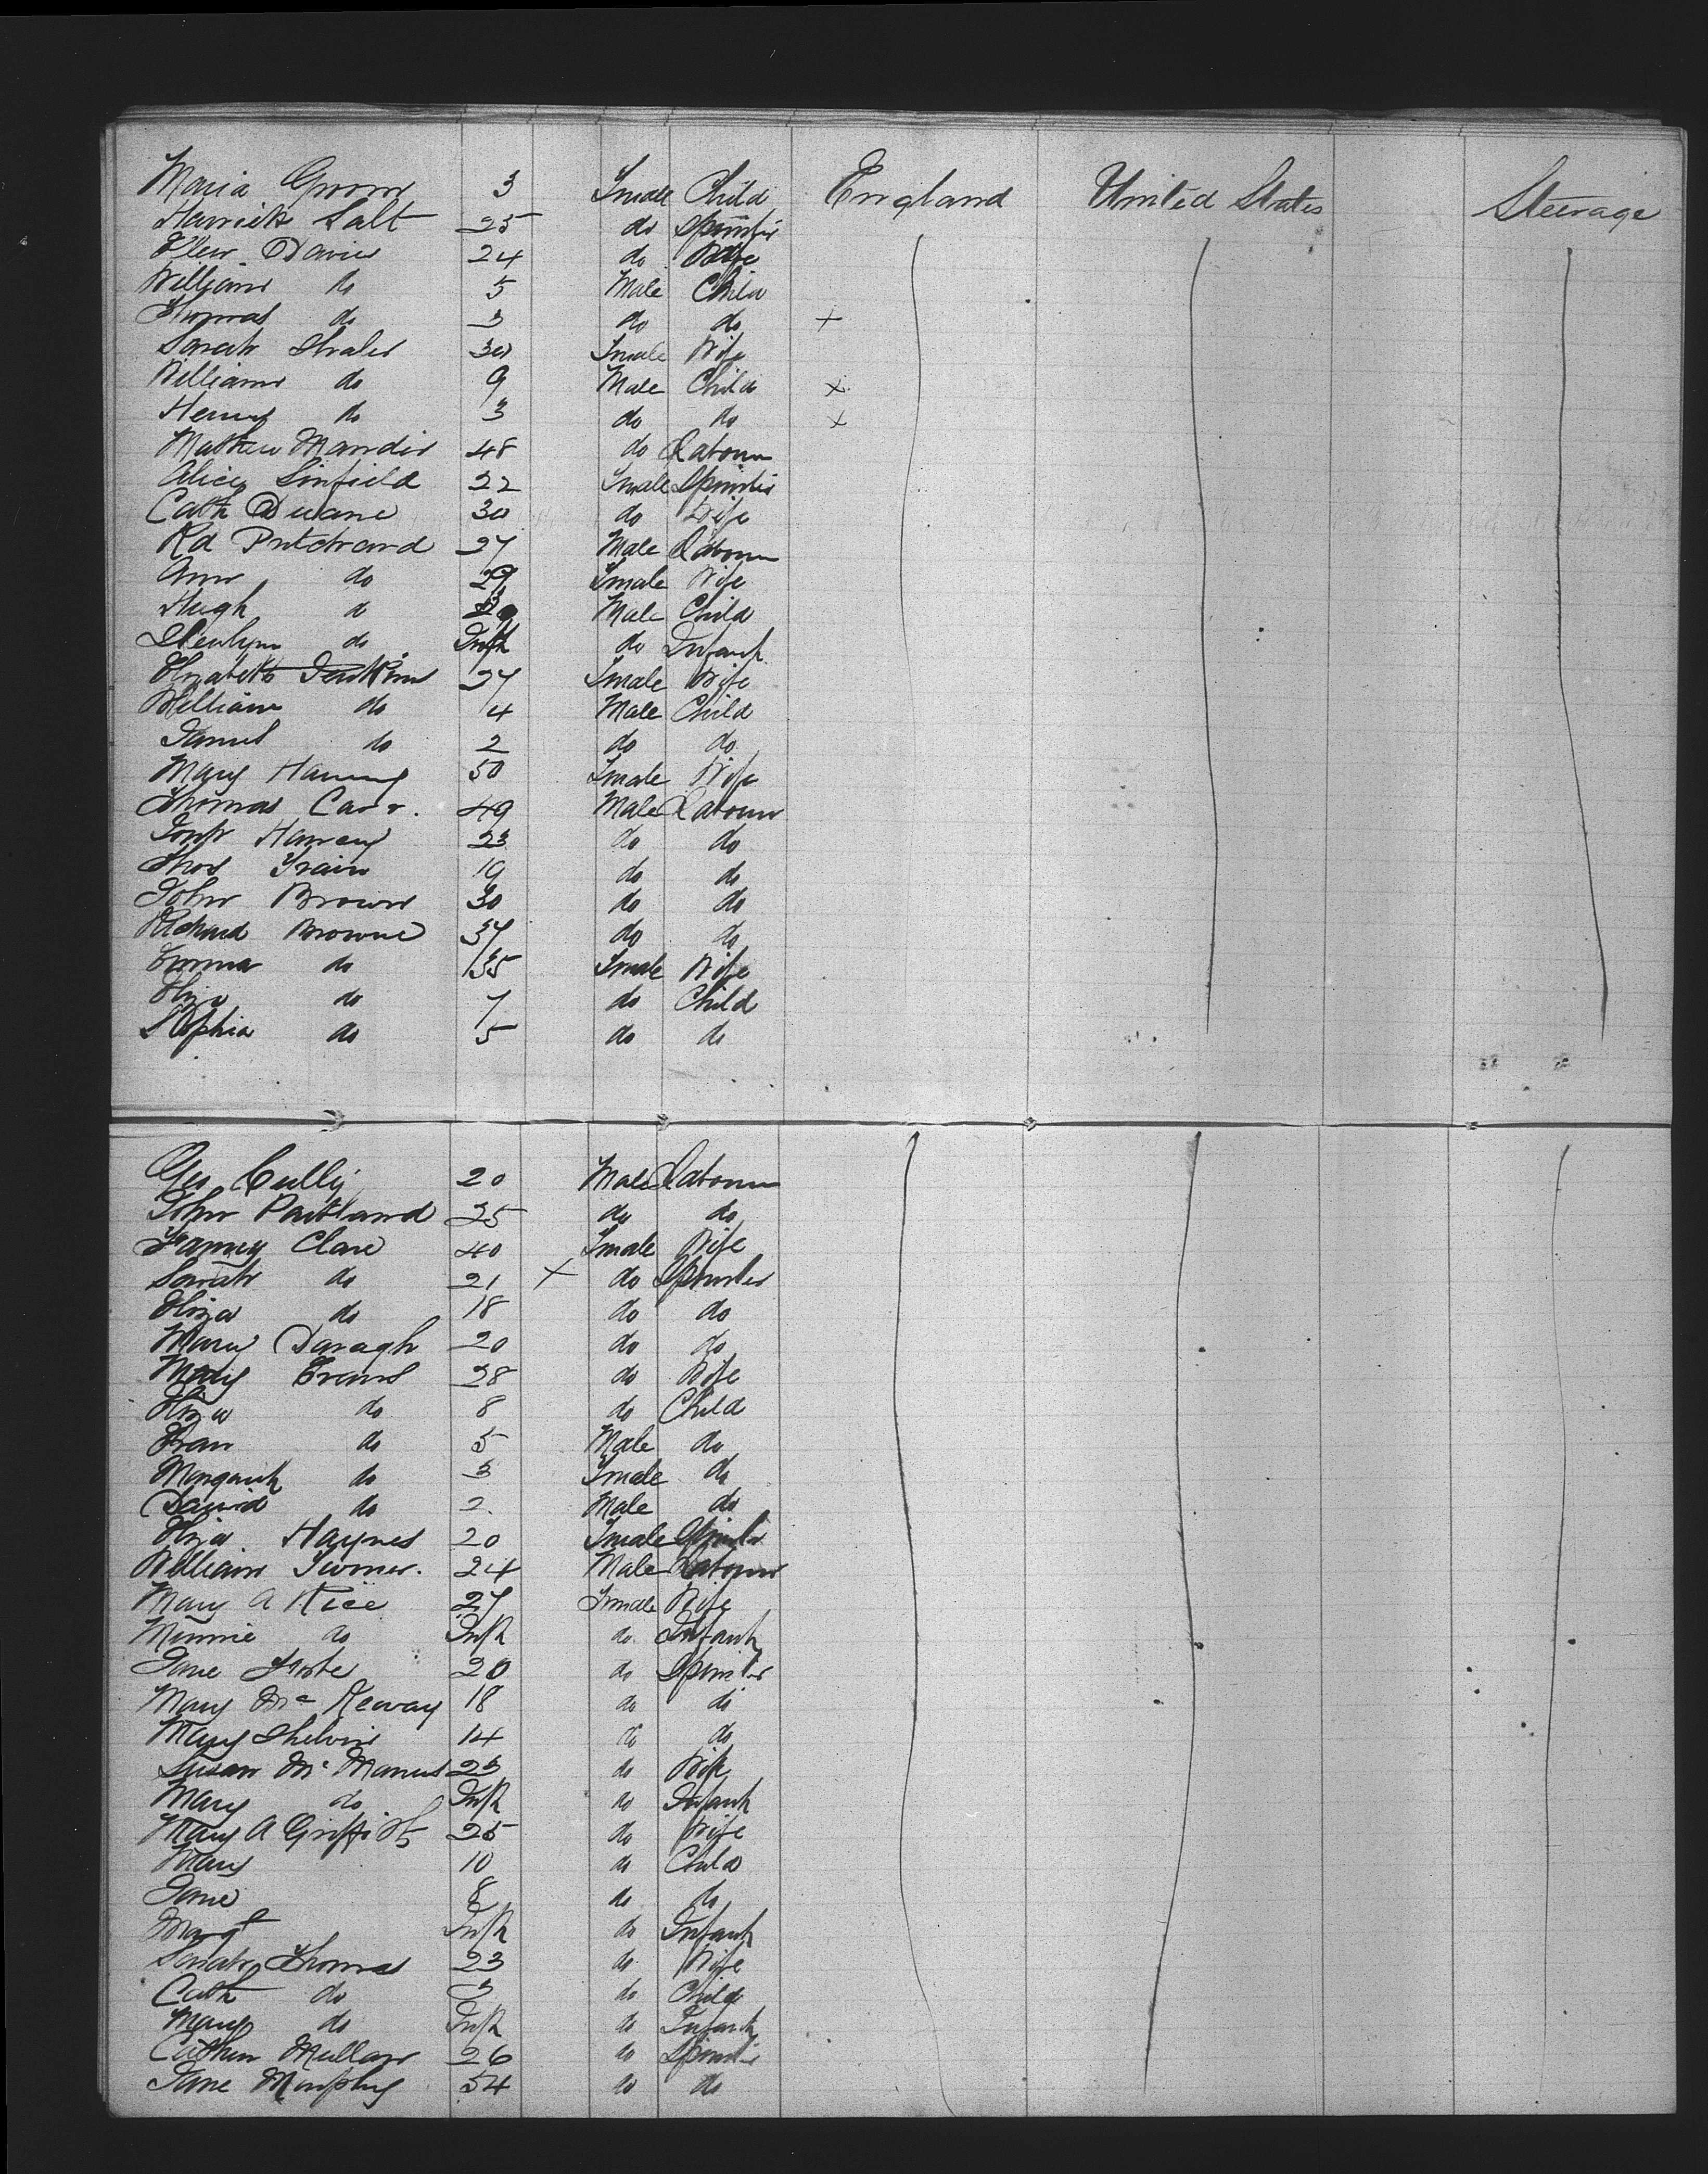 Maria Groom 3 Female Child England United States Steerage
Harriett Salt 25 do Spinster
Ellen Davies 24 do Wife
William do 5 Male Child
Thomas do 3 do do +
Sarah 30 Female Wife
William do 9 Male Child x
Henry do 3 do do x
Mathew 48 do Labourer
Alice Sinfield 22 Female Spinster
Cath Duane 30 do Wife
Rd Pritchard 27 Male Labourer
Ann do 29 Female Wife
Hugh do Male Child
Llewlynn do Inft do Infant
Elizabeth Jenkins 27 Female Wife
William do 4 Male Child
James do 2 do do
Mary 50 Female Wife
Thomas Carr. 49 Male Labourer
23 do do
Thos 19 do do
John Brown 30 do do
Richard Browne 37 do do
Emma do 35 Female Wife
Eliza do 7 do Child
Sophia do 5 do do
Geo Cully 20 Male Labourer
John 25 do do
Fanny Clare 40 Female Wife
Sarah do 21 x do Spinster
Eliza do 18 do do
Mary Daragh 20 do do
Mary Evans 28 do Wife
Eliza do 8 do Child
Evan do 5 Male do
Margaret do 3 Female do
David do 2 Male do
Eliza Haynes 20 Female Spinster
William Turner. 24 Male Labourer
Mary A Rice 27 Female Wife
Minnie do Inft do Infant
Jane 20 do Spinster
Mary Mc 18 do do
Mary 14 do do
Susan Mc Manus 23 do Wife
Mary do Inft do Infant
Mary A Griffith 25 do Wife
Mary 10 do Child
Jane 8 do do
Margt Inft do Infant
Sarah Thomas 23 do Wife
Cath do 3 do Child
Mary do Inft do Infant
Cathen Mullan 26 do Spinster
Jane Murphy 54 do do